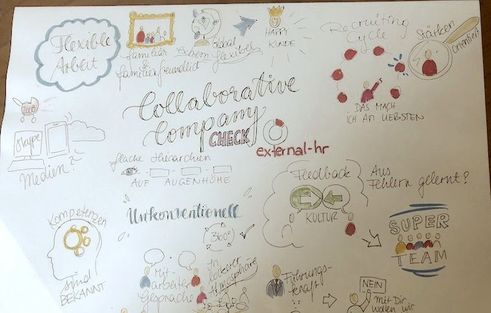 Flexible
Arbeit
familiär
&
familienfreundlich
HAPPY
KUNDE
Recruiting
Cycle
DAS MACH
ICH AM LIEBSTEN
Stärken
orientiert
Collaborative
Company
CHECK
external-hr
skype
Medien
flache Hierarchien
AUF AUGENHÖHE
Feedback
KULTUR
Aus
Fehlern gelernt?
Unkonventionell
360°
Kompetenzen
sind
BEKANNT
SUPER
TEAM
Mit-
arbeiter
gespräche
in
lockerer
Atmosphäre
Führungs-
kraft
NEIN
mit Dir
wollen wir